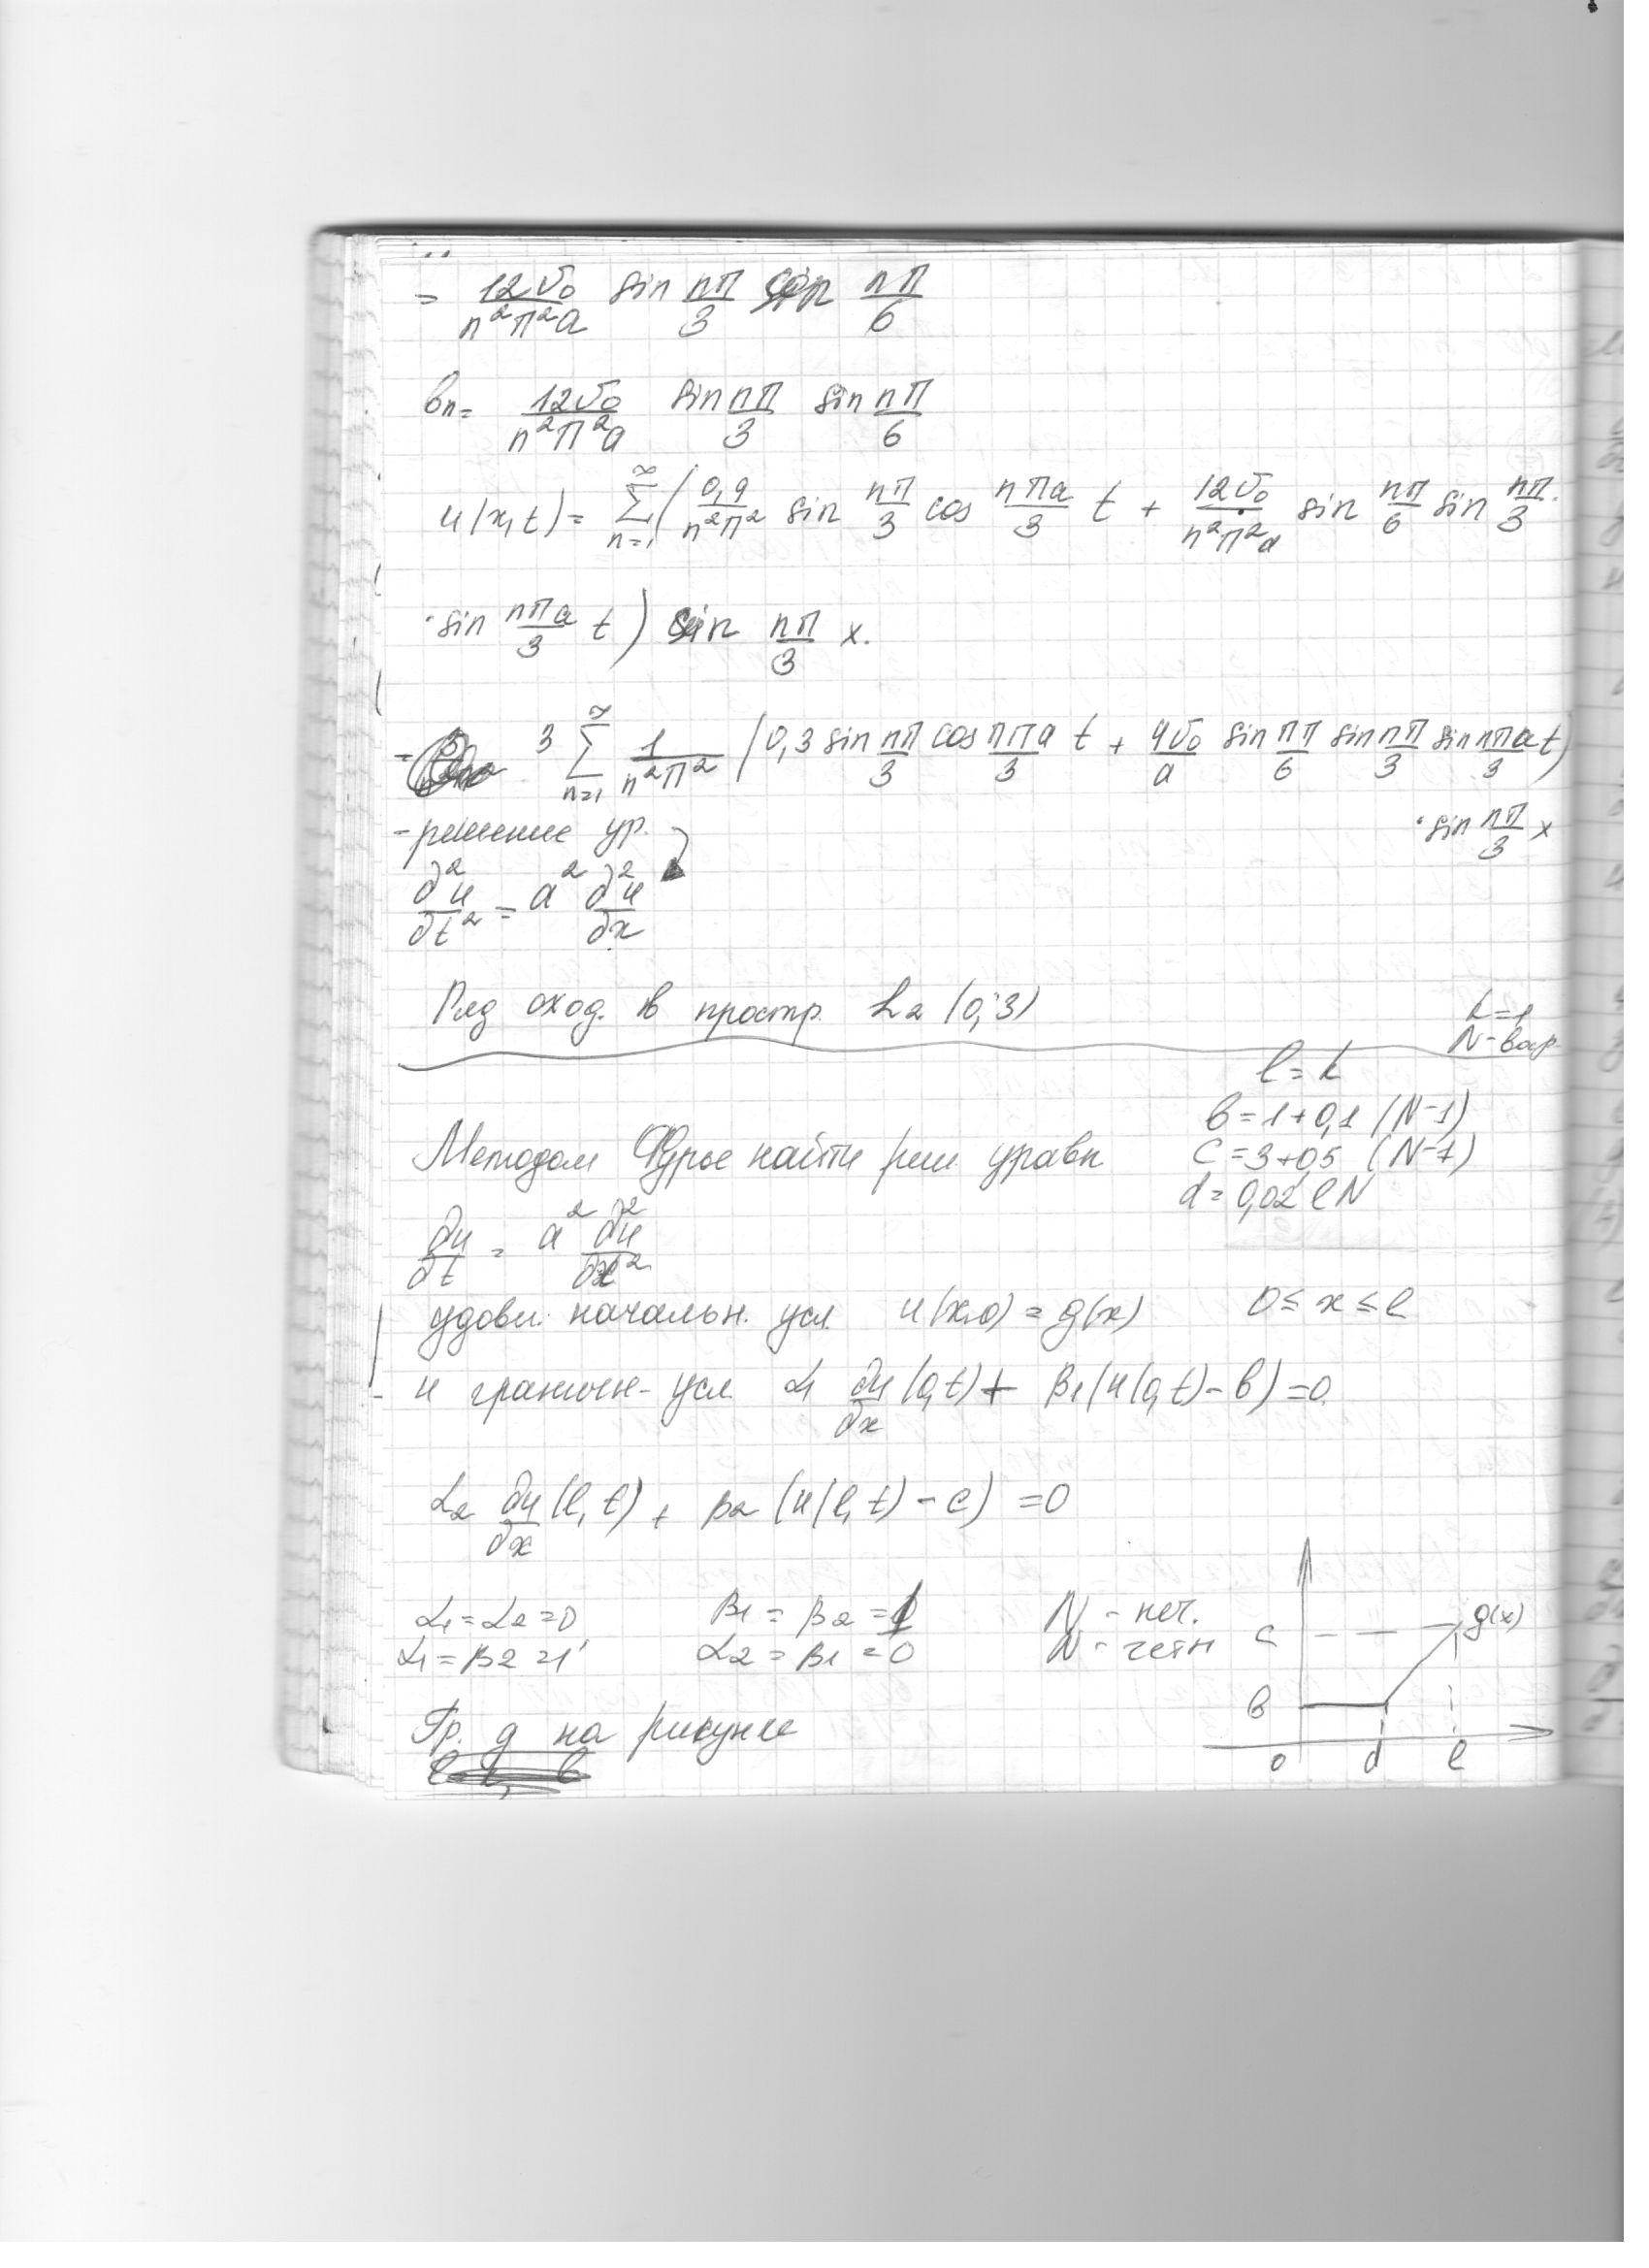 = 12v₀/(n²π²a) sin nπ/3 sin nπ/6
bn = 12v₀/(n²π²a) sin nπ/3 sin nπ/6
u(x,t) = ∑_{n=1}^∞ (0,9/(n²π²) sin nπ/3 cos nπa/3 t + 12v₀/(n²π²a) sin nπ/6 sin nπ/3 ·
· sin nπa/3 t) sin nπ/3 x.
= 3 ∑_{n=1}^∞ 1/(n²π²) (0,3 sin nπ/3 cos nπa/3 t + 4v₀/a sin nπ/6 sin nπ/3 sin nπa/3 t)
· sin nπ/3 x
- решение ур.
∂²u/∂t² = a² ∂²u/∂x
Ряд сход. в простр. L₂ (0;3)
N - вар.
l = k
b = 1+0,1 (N-1)
Методом Фурье найти реш. уравн
c = 3+0,5 (N-1)
d = 0,02 l N
∂u/∂t = a² ∂²u/∂x²
удовл. начальн. усл. u(x,0) = g(x) 0 ≤ x ≤ l
и граничн- усл. α₁ ∂u/∂x (0,t) + β₁(u(0,t) - b) = 0.
α₂ ∂u/∂x (l,t) + β₂ (u(l,t) - c) = 0
α₁ = α₂ = 0 β₁ = β₂ = 1 N - неч.
α₁ = β₂ = 1 α₂ = β₁ = 0 N - четн
c g(x)
b
Гр. g на рисунке
0 d l